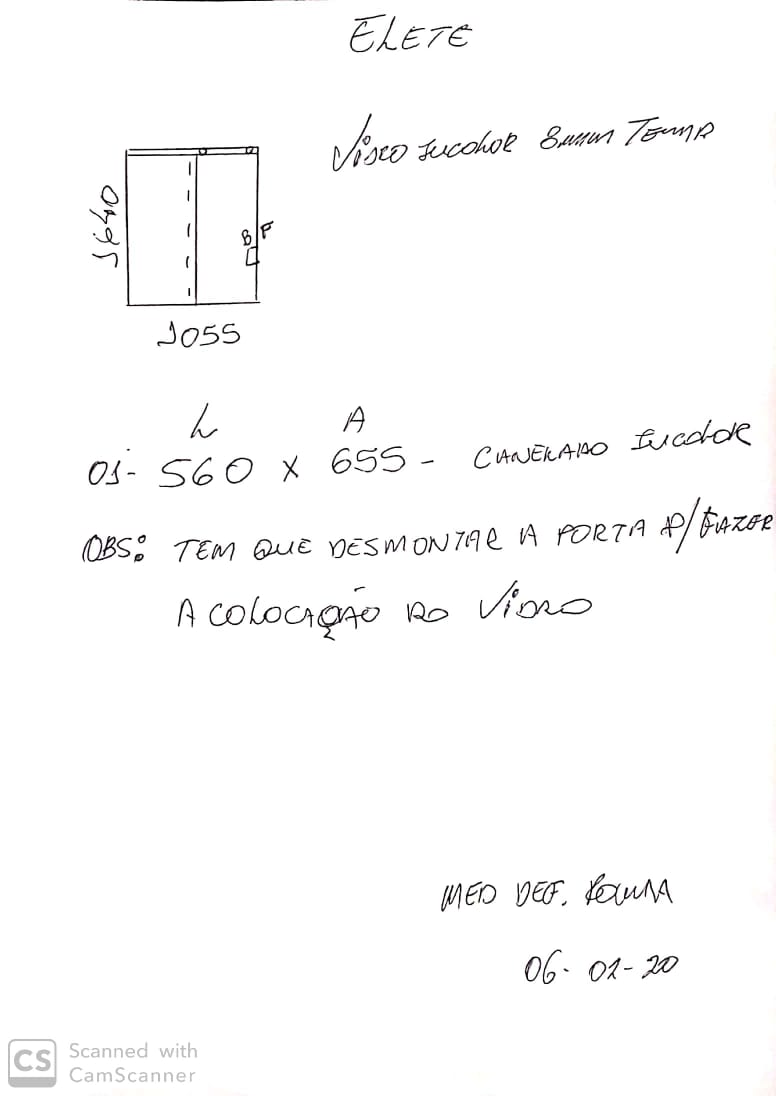 ELETE
VIDRO INCOLOR 8mm TEMP
1640
B F
1055
L A
01- 560 X 655 - CANELADO INCOLOR
OBS: TEM QUE DESMONTAR A PORTA P/ FAZER
A COLOCAÇÃO DO VIDRO
MED DEF.
06-02-20
CS Scanned with
CamScanner